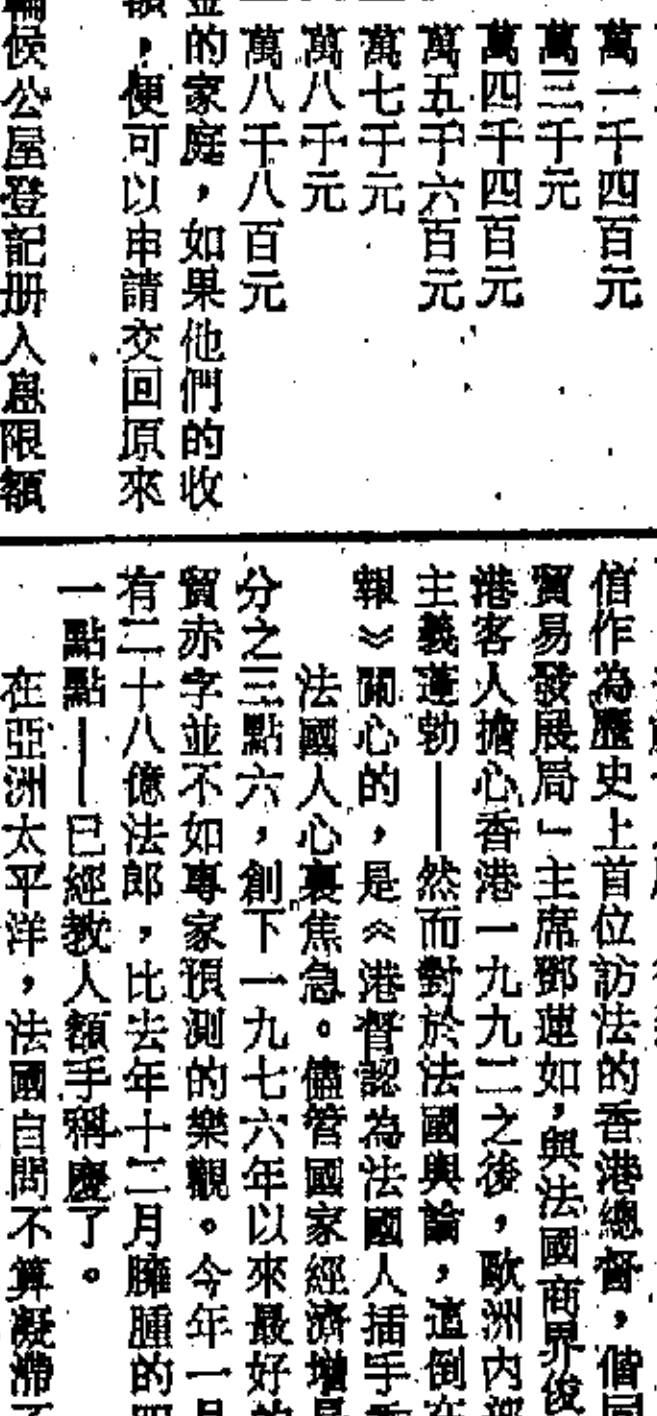 萬一千四百元
萬三千元
萬四千四百元
萬五千六百元
萬七千元
萬八千元
萬八千八百元
的家庭，如果他們的收
額，便可以申請交回原來
輪候公屋登記册入息限額
信作為歷史上首位訪法的香港總督，偕同
貿易發展局」主席鄧蓮如，與法國商界後
港客人擔心香港一九九二之後，歐洲內部
主義蓬勃——然而對於法國輿論，這倒
報》關心的，是《港督認為法國人插手
法國人心裏焦急。儘管國家經濟增長
分之三點六，創下一九七六年以來最好的
貿赤字並不如專家預測的樂觀。今年一月
有二十八億法郎，比去年十二月臃腫的四
一點點——已經教人額手稱慶了。
在亞洲太平洋，法國自問不算凝滯不